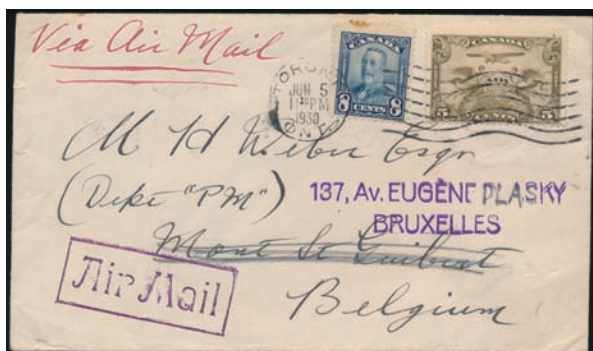 Via Air Mail
CANADA
8 CENTS 8
CANADA
AIR
5 CENTS 5
TORONTO
JUN 5
11 30 PM
1930
ONT
M H Weber Esqr
(Dept "PM")
137, Av. EUGÈNE PLASKY
BRUXELLES
Mont St Guibert
Air Mail
Belgium